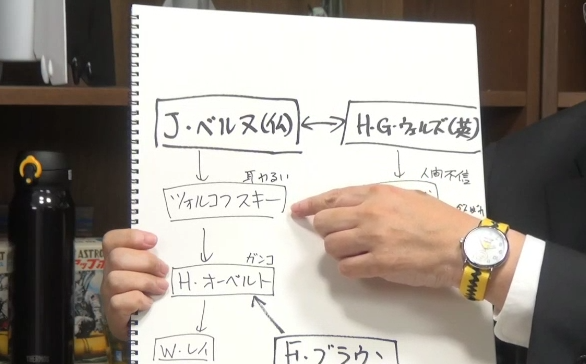 J・ベルヌ(仏)
H・G・ウェルズ(英)
耳わるい
人間不信
ツィオルコフスキー
ガンコ
H・オーベルト
W・レイ
F・ブラウン